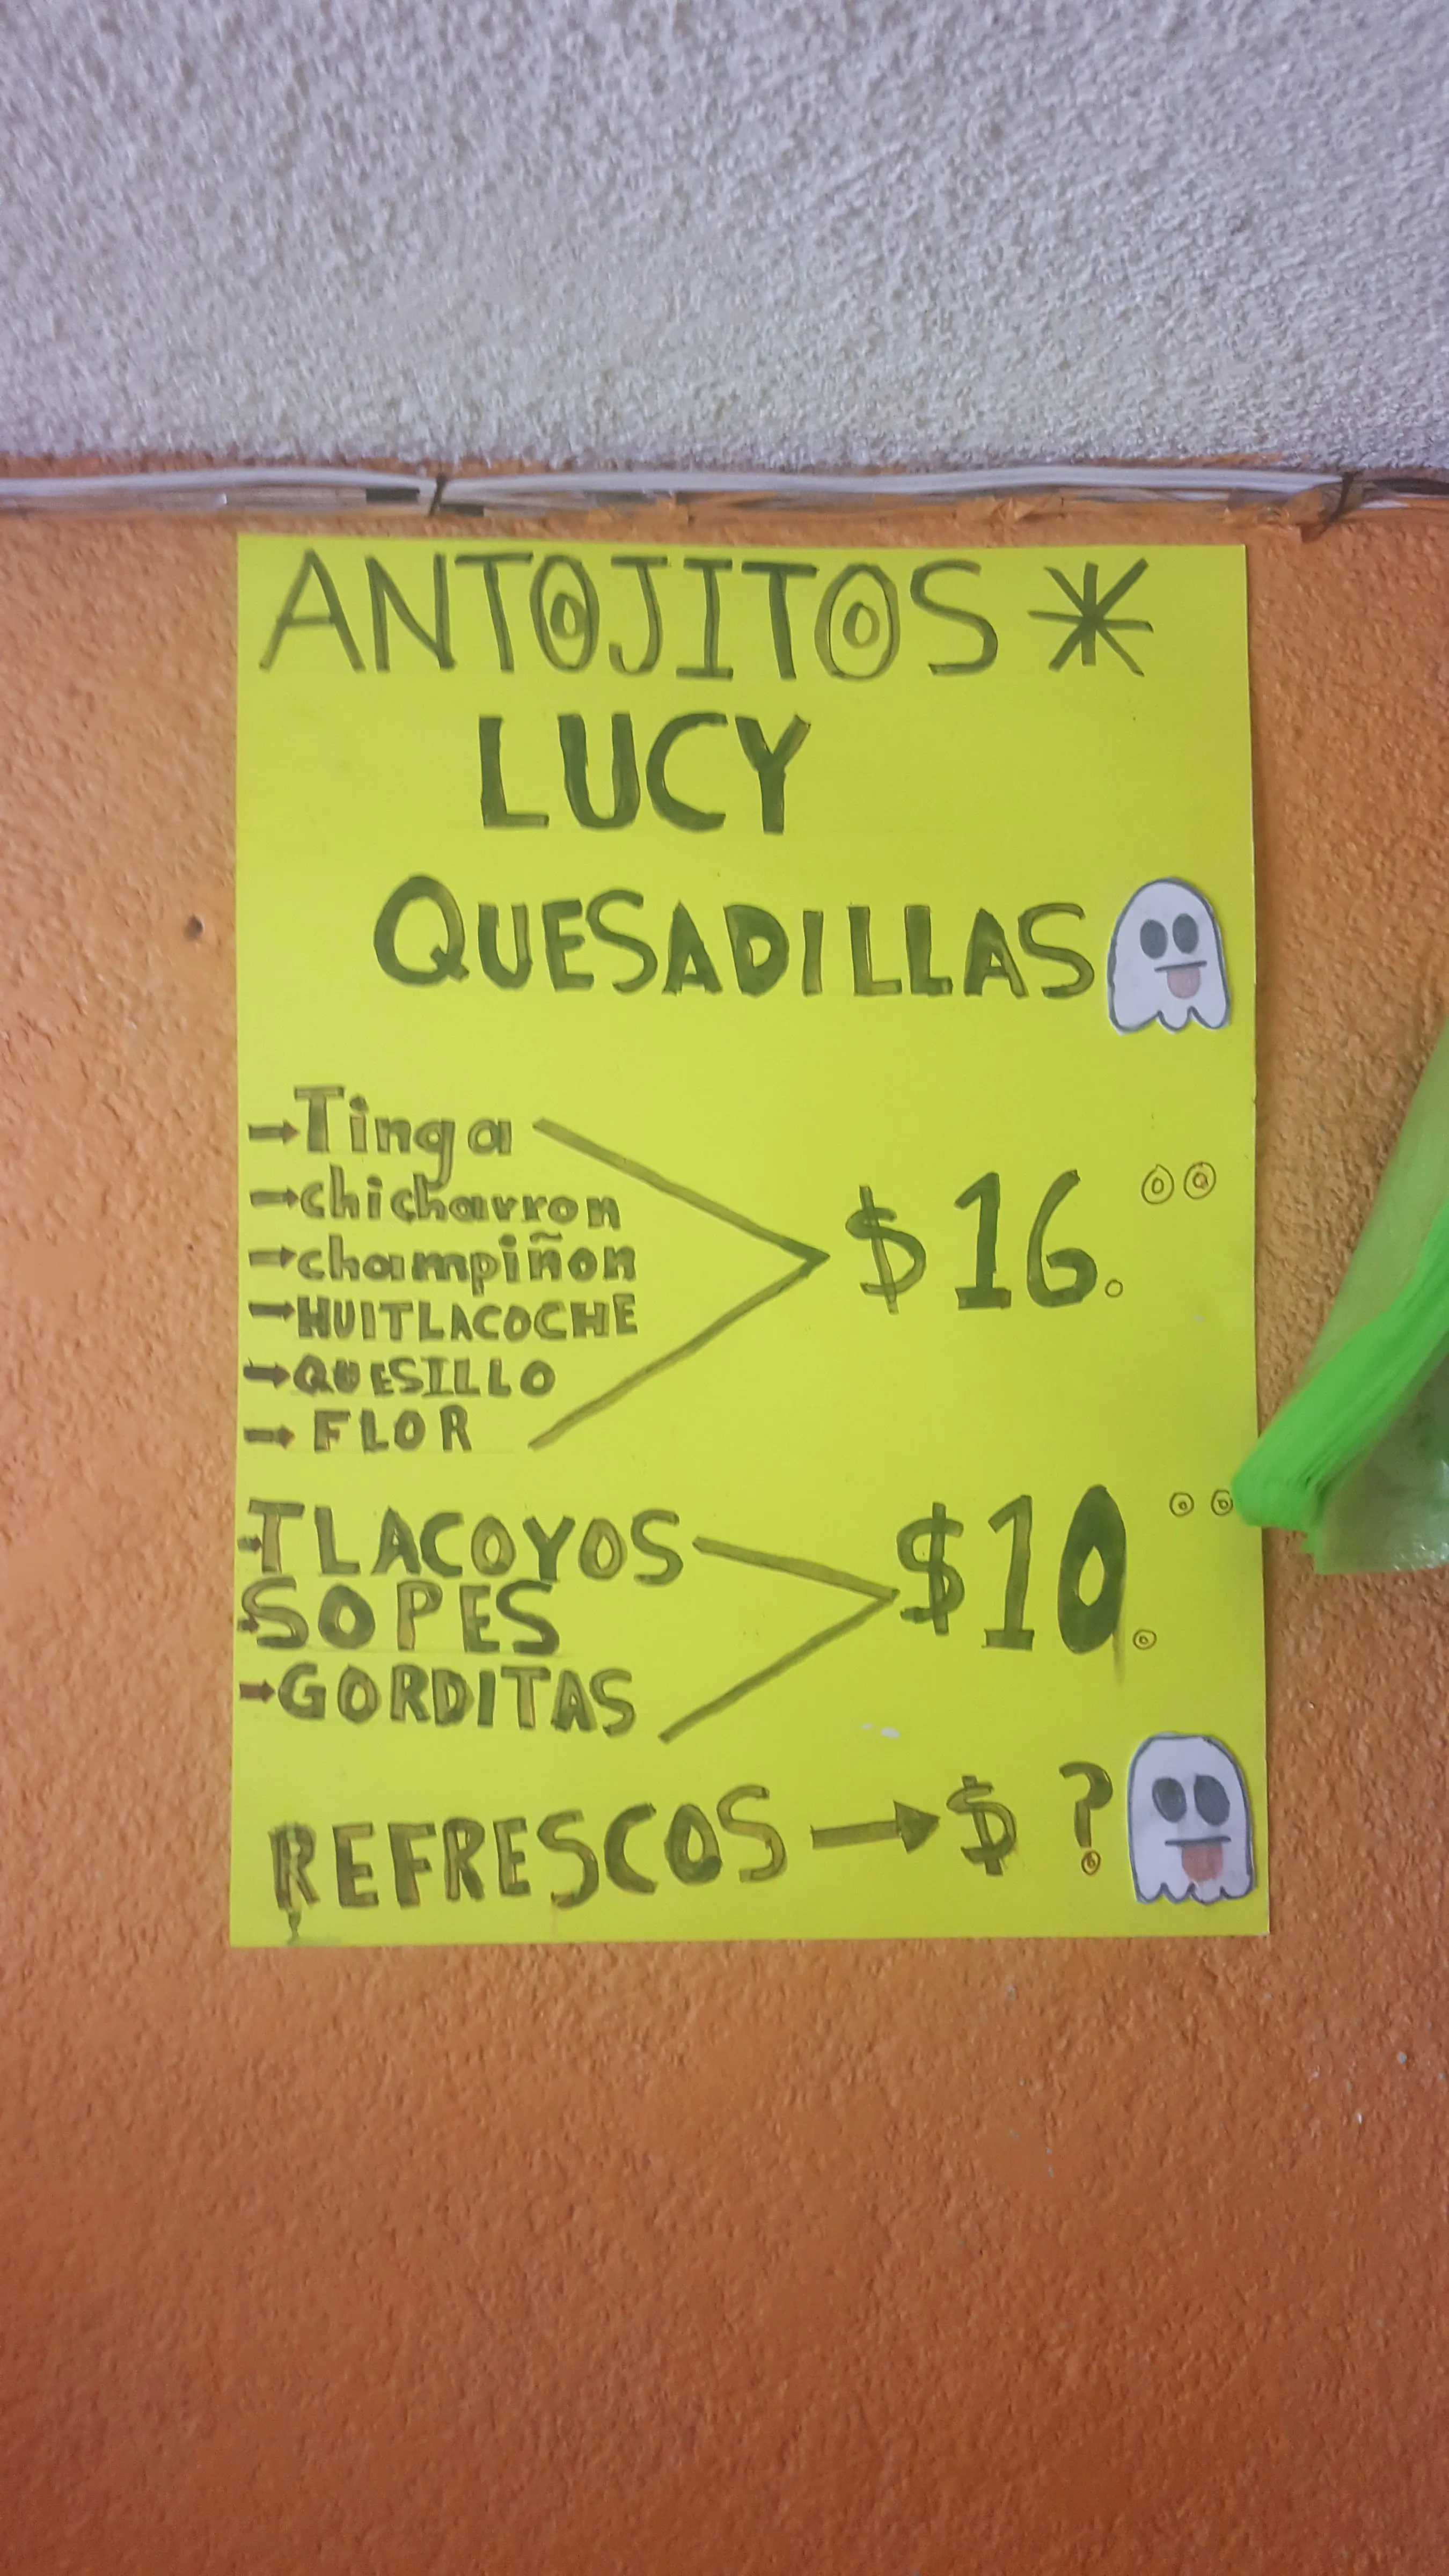 ANTOJITOS *
LUCY
QUESADILLAS
→Tinga
→chicharron
→champiñon
→HUITLACOCHE
→QUESILLO
→ FLOR
$16.00
→TLACOYOS
→SOPES
→GORDITAS
$10.00
REFRESCOS → $ ?